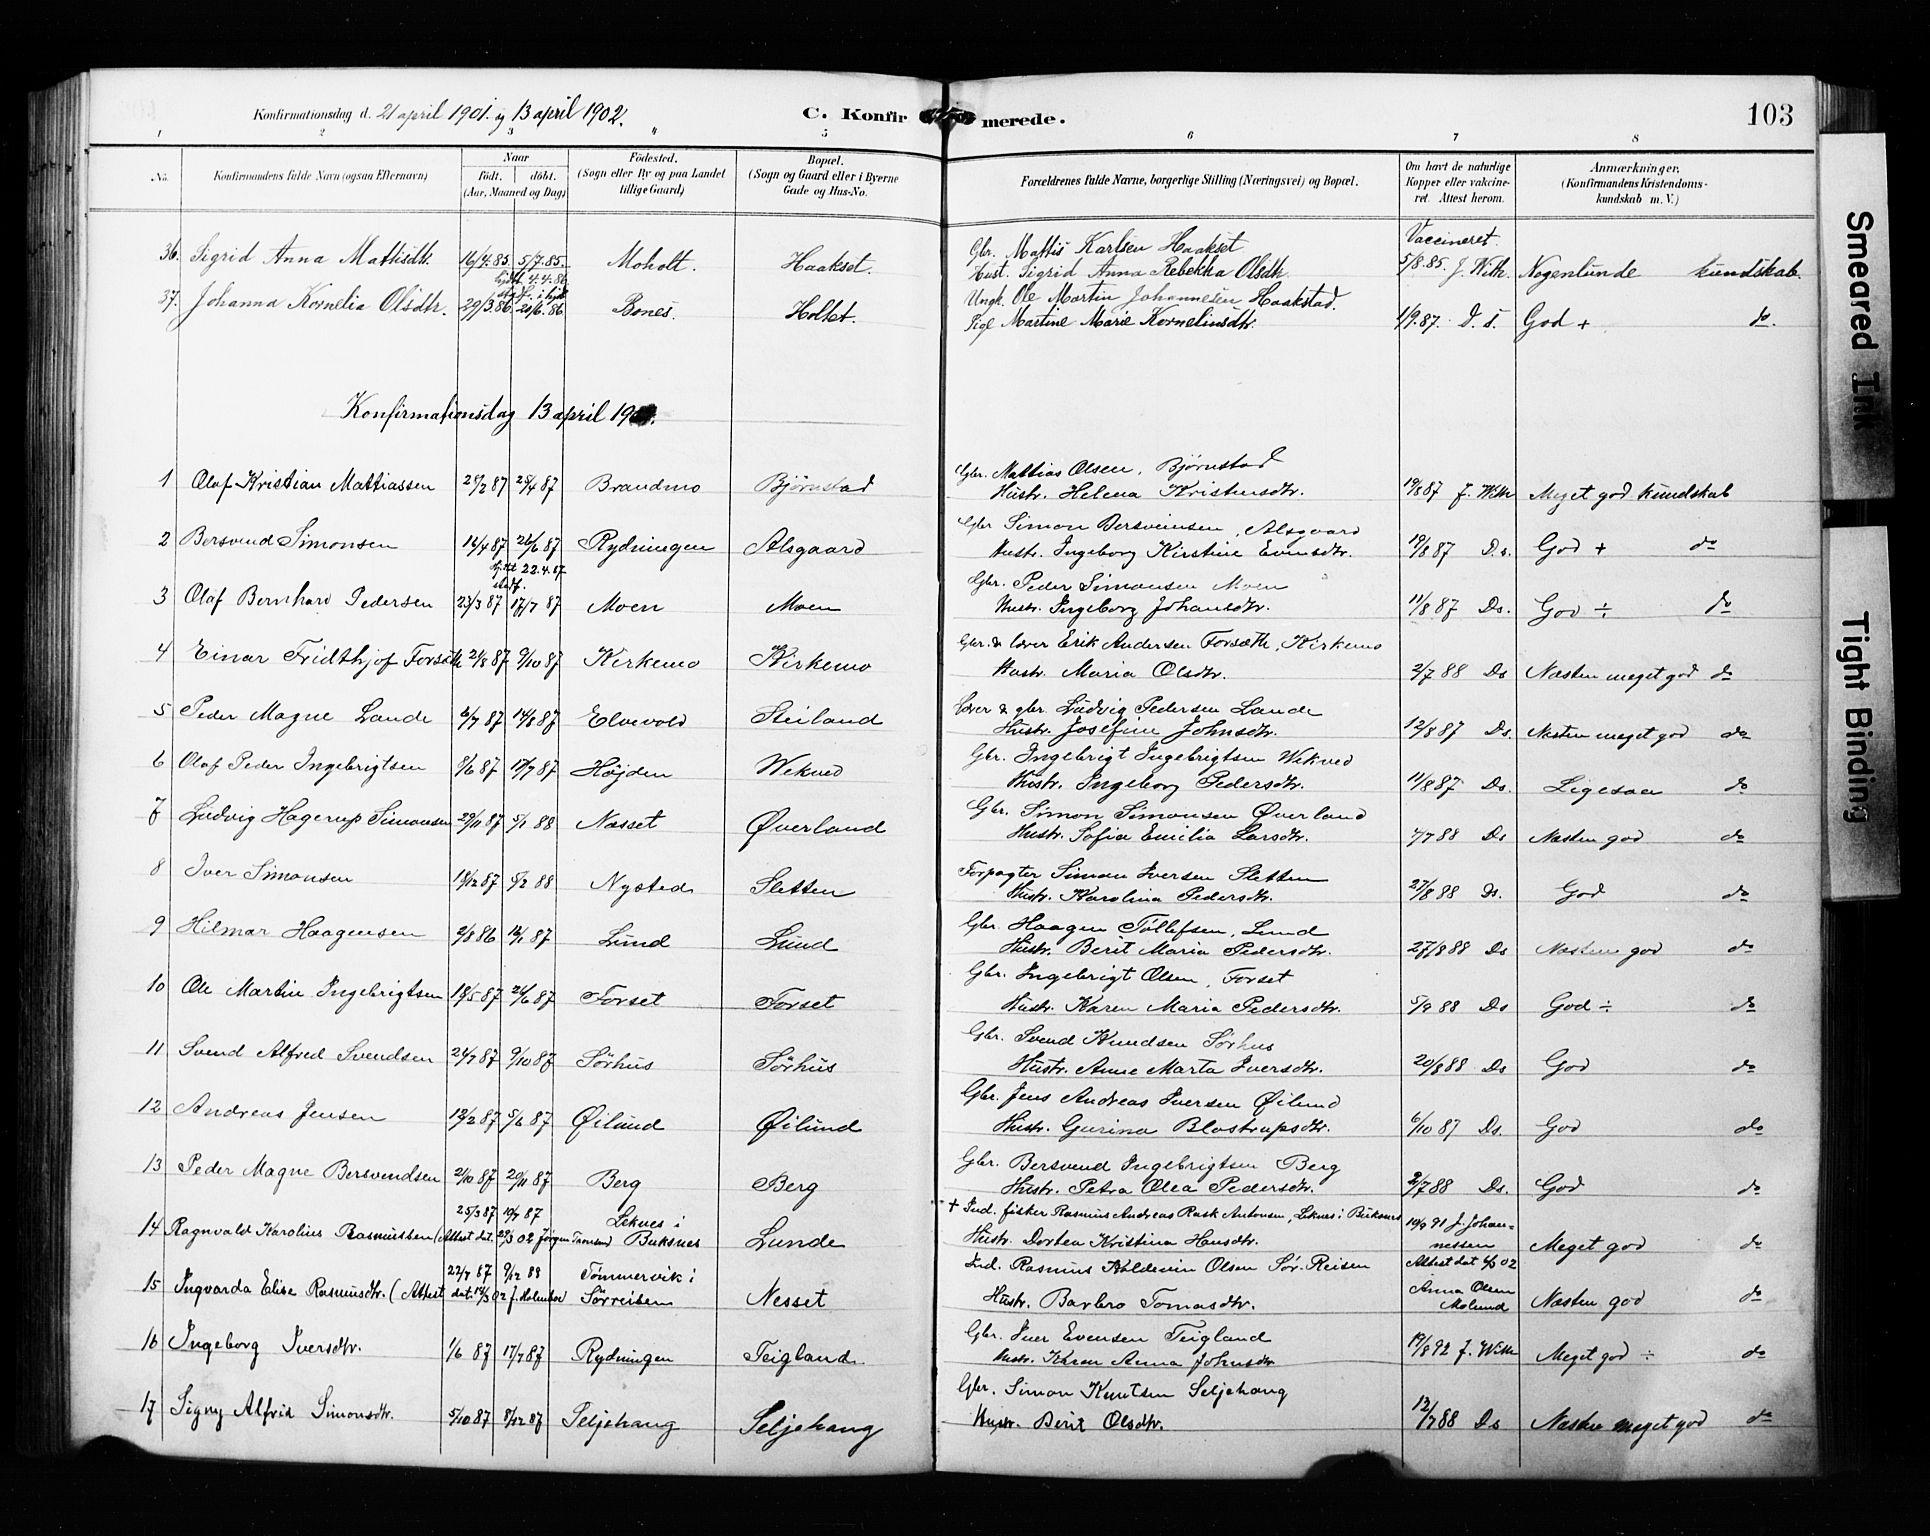 Konfirmationsdag d. 21 april 1901. og 13 april 1902.
C. Konfirmerede.
103
1 2 3 5 6 7 8
No.
Konfirmandens fulde Navn (ogsaa Efternavn)
Naar
født. døbt.
(Aar, Maaned og Dag)
Fødested.
(Sogn eller By og paa Landet tillige Gaard)
Bopæl.
(Sogn og Gaard eller i Byerne Gade og Hus-No.
Forældrenes fulde Navne, borgerlige Stilling (Næringsvei) og Bopæl.
Om havt de naturlige Kopper eller vakcineret. Attest herom.
Anmærkninger.
(Konfirmandens Kristendomskundskab m. V.)
36. Sigrid Anna Mattisdtr. 16/4.85. 5/7.85. Moholt. Haakset. Gbr. Mattis Karlsen Haakset Vaccineret
Hust. Sigrid Anna Rebekka Olsdtr. 5/8.85. J. With. Nogenlunde kundskab.
hjdbt 4.4.86 stadf. i kirk
37. Johanna Kornelia Olsdtr. 29/3.86. 20/6.86 Bones. Holtet. Ungk. Ole Martin Johannesen Haakstad.
Pige Martine Marie Kornelinsdtr. 1/9.87. D. S. God + do.
Konfirmationsdag 13 april
1 Olaf Kristian Mattiassen 28/2 87 25/4 87 Brandmo Bjørnstad Gbr. Mattias Olsen, Bjørnstad
Hustr. Helena Kristensdtr. 19/8 87 J. With Meget god kundskab
2 Bersvend Simonsen 14/4 87 26/6 87 Rydningen Alsgaard Gbr Simon Bersveinsen, Alsgaard
Hustr. Ingeborg Kirstine Evensdtr. 19/8 87 D.s. God + do
hj.dbt 22.4.87 stadf.
3 Olaf Bernhard Pedersen 23/3 87 17/7 87 Moen Moen Gbr. Peder Simonsen Moen
Hustr. Ingeborg Johansdtr. 11/8 87 Ds. God ÷ do
4 Einar Fridthjof Forsæth 24/8 87 9/10 87 Kirkemo Kirkemo Gbr. & lærer Erik Andersen Forsæth, Kirkemo
Hustr. Maria Olsdtr. 2/7 88 Ds Næsten meget god do
5 Peder Magne Lande 6/7 87 14/8 87 Elvevold Steiland Lærer & gbr. Ludvig Pedersen Lande
Hustr. Josefine Johnsdtr. 12/8 87 Ds. Næsten meget god do
6 Olaf Peder Ingebrigtsen 8/6 87 17/7 87 Højden Wekved Gbr. Ingebrigt Ingebrigtsen Wekved
Hustr. Ingeborg Pedersdtr. 11/8 87 Ds. Ligesaa do
7 Ludvig Hagerup Simonsen 29/11 87 5/1 88 Næsset Øverland Gbr. Simon Simonsen Øverland
Hustr. Sofia Emilia Larsdtr. 7/7 88 Ds Næsten god do
8 Iver Simonsen 18/12 87 5/2 88 Nysted Sletten Forpagter Simon Iversen Sletten
Hustr. Karolina Pedersdtr. 27/8 88 Ds. God do
9 Hilmar Haagensen 2/8 86 14/1 87 Lund Lund Gbr. Haagen Tollefsen, Lund
Hustr. Berit Maria Pedersdtr. 27/8 88 Ds Næsten god do
10 Ole Martin Ingebrigtsen 18/5 87 26/6 87 Forset Forset Gbr. Ingebrigt Olsen, Forset
Hustr. Karen Maria Pedersdtr. 5/9 88 Ds God ÷ do
11 Svend Alfred Svendsen 24/7 87 9/10 87 Sörhus Sörhus Gbr. Svend Knudsen Sörhus
Hustr. Anne Marta Iversdtr. 20/8 88 Ds God do
12 Andreas Jensen 12/2 87 5/6 87 Øilund Øilund Gbr. Jens Andreas Iversen Øilund
Hustr. Gurina Blostrupsdtr. 6/10 87 Ds. God do
13 Peder Magne Bersvendsen 2/10 87 20/11 87 Berg Berg Gbr. Bersvend Ingebrigtsen Berg
Hustr. Petra Olea Pedersdtr. 2/7 88 Ds. God do
14 Ragnvald Karolius Rasmussen (Attest dat. 29/3 02 Jørgen Tranaas) 25/3 87 10/7 87 Leknes i Buksnes Lunde + Ind. fisker Rasmus Andreas Rask Antonsen, Leknes i Buksnes
Hustr. Dortea Kristina Hansdtr. 10/9 91 J. Johannessen Meget god do
15 Ingvarda Elise Rasmusdtr. (Attest dat. 14/3 02 J. Holmboe) 22/7 87 9/12 88 Tömmervik i Sörreisen Nesset Ind. Rasmus Koldevin Olsen Sör-Reisen Attest dat 4/3 02
Hustr. Barbro Tomasdtr. Anna Olsen Molund Næsten god do
16 Ingeborg Iversdtr. 1/6 87 17/7 87 Rydningen Teigland Gbr. Iver Evensen Teigland
Hustr. Karen Anna Johnsdtr 19/8 92 J. With Meget god ÷ do
17 Signy Alfrid Simonsdtr. 5/10 87 8/12 87 Seljehaug Seljehaug Gbr. Simon Knutsen Seljehaug
Hustr. Berit Olsdtr. 12/7 88 Ds Næsten meget god do
Smeared Ink
Tight Binding